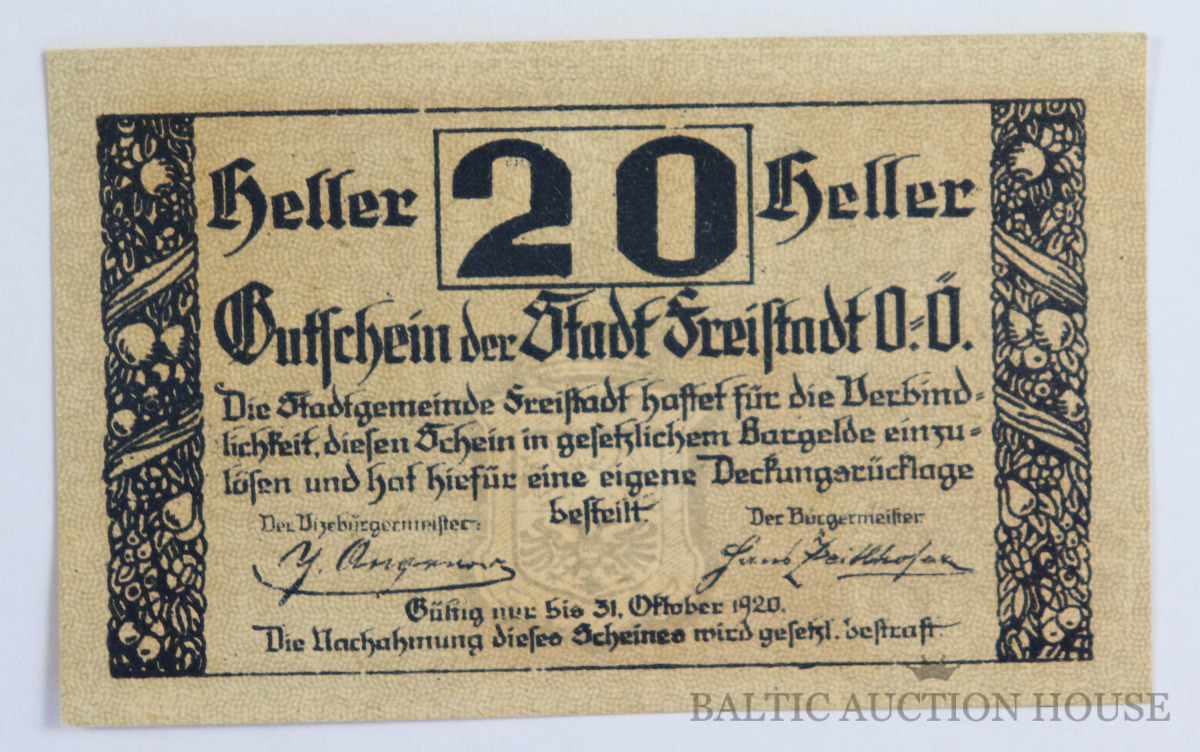 Heller 20 Heller
Gutschein der Stadt Freistadt O.=Ö.
Die Stadtgemeinde Freistadt haftet für die Verbind=
lichkeit, diesen Schein in gesetzlichem Bargelde einzu=
lösen und hat hiefür eine eigene Deckungsrücklage
bestellt.
Der Vizebürgermeister:
Der Bürgermeister
Hans
Gültig nur bis 31. Oktober 1920.
Die Nachahmung dieses Scheines wird gesetzl. bestraft.
BALTIC AUCTION HOUSE